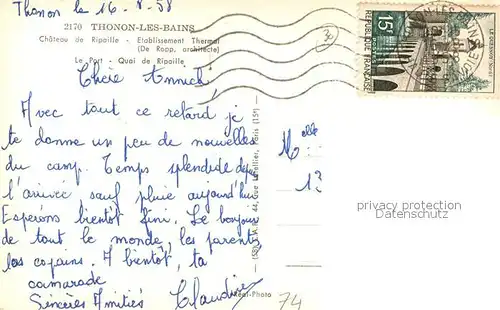 Thonon le 16-8-58
2170 THONON-LES-BAINS
Château de Ripaille - Etablissement Thermal
(De Rapp, architecte)
Le Port - Quai de Ripaille
Chère Annick
Avec tout ce retard je
te donne un peu de nouvelles
du camp. Temps splendide depuis
l'arrivée sauf pluie aujourd'hui
Esperons bientôt fini. Le bonjour
de tout le monde, les parents
les copains. A bientôt, ta
camarade
Sincères Amitiés Claudine
Melle
13
privacy protection
Datenschutz
15F
REPUBLIQUE FRANÇAISE
Paris (15e)
Photo
74